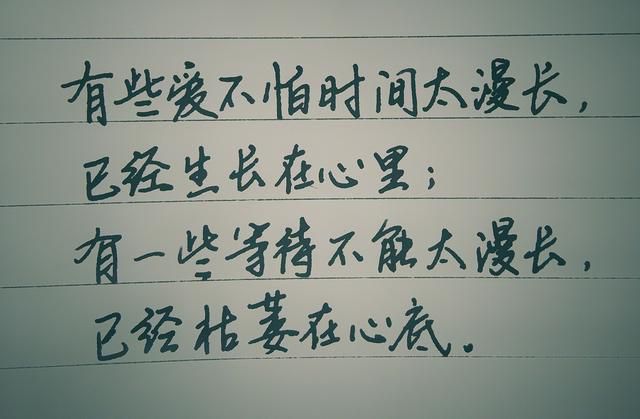 有些爱不怕时间太漫长，
已经生长在心里；
有一些等待不能太漫长，
已经枯萎在心底。